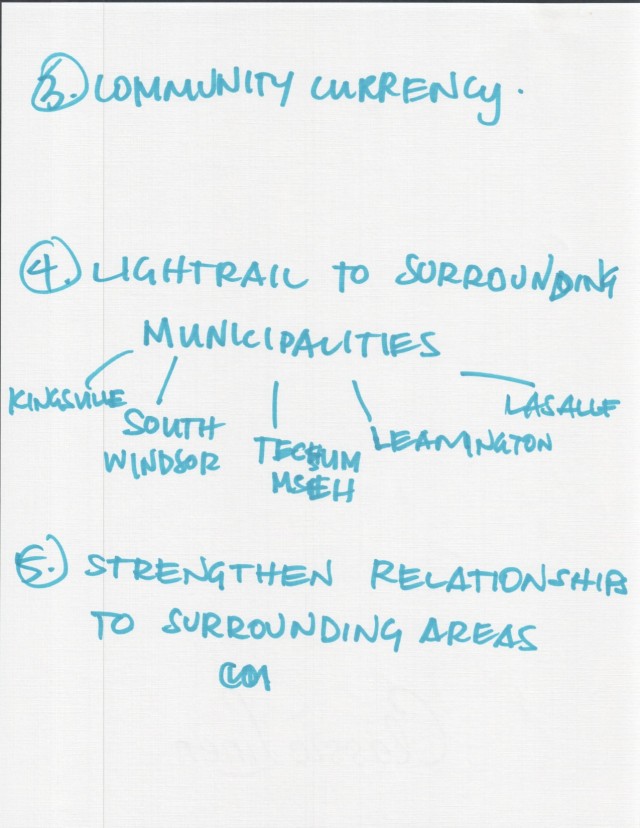 3. COMMUNITY CURRENCY.
4. LIGHTRAIL TO SURROUNDING
MUNICIPALITIES
KINGSVILLE
SOUTH
WINDSOR
TECHUM
MSEH
LEAMINGTON
LASALLE
5. STRENGTHEN RELATIONSHIPS
TO SURROUNDING AREAS